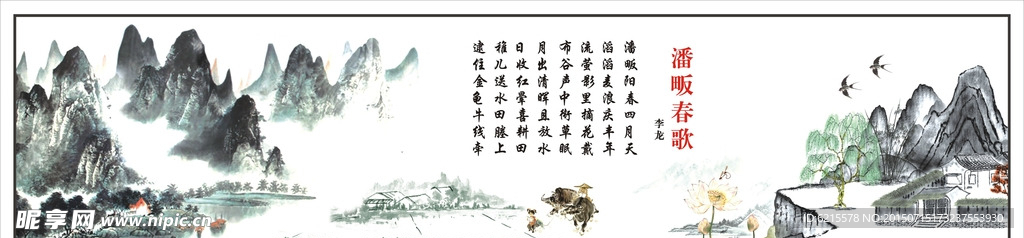 潘畈春歌
李龙
潘畈阳春四月天
滔滔麦浪庆丰年
流萤影里摘花戴
布谷声中衔草眠
月出清晖且放水
日收红晕喜耕田
稚儿送水田塍上
逮住金龟牛线牵
昵享网 www.nipic.cn
ID:6215578 NO:20150715173237553930